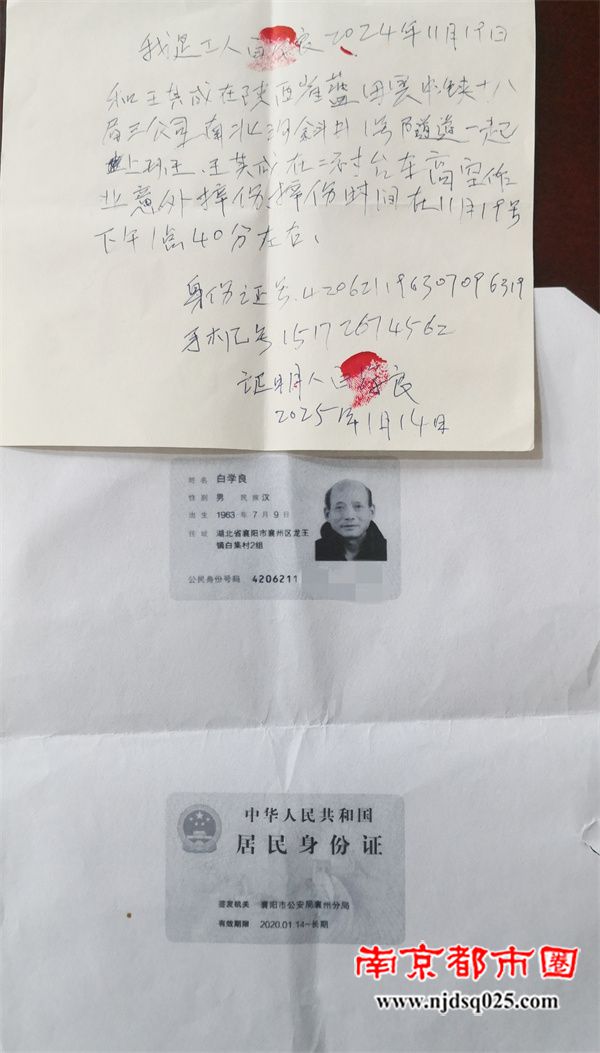 我是工人白学良2024年11月19日
和王其成在陕西 蓝田 中铁十八
局三公司 1号隧道一起
上班 王其成在二衬台车高空作
业意外摔伤摔伤时间在11月19号
下午1点40分左右、
身份证号420621196307096319
手机号15172674562
证明人白学良
2025年1月14日
姓名 白学良
性别 男 民族 汉
出生 1963年7月9日
住址 湖北省襄阳市襄州区龙王
镇白集村2组
公民身份号码 4206211
中华人民共和国
居民身份证
签发机关 襄阳市公安局襄州分局
有效期限 2020.01.14-长期
南京都市圈
www.njdsq025.com